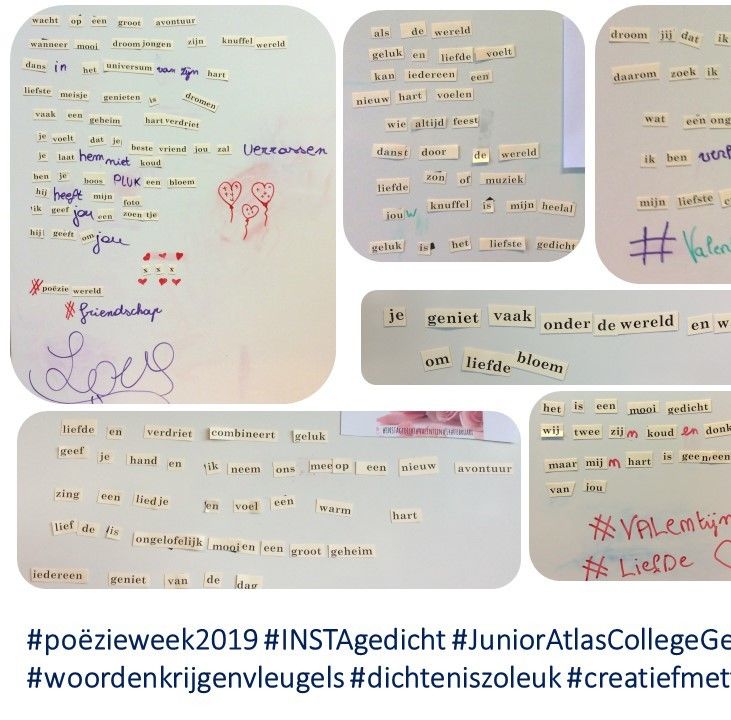 wacht op een groot avontuur
wanneer mooi droom jongen zijn knuffel wereld
dans in het universum van zijn hart
liefste meisje genieten is dromen
vaak een geheim hart verdriet
je voelt dat je beste vriend jou zal verrassen
je laat hem niet koud
ben je boos PLUK een bloem
hij heeft mijn foto
ik geef jou een zoen tje
hij geeft om jou
x x x
#poëzie wereld
#friendschap
Love
als de wereld
geluk en liefde voelt
kan iedereen een
nieuw hart voelen
wie altijd feest
danst door de wereld
liefde zon of muziek
jouw knuffel is mijn heelal
geluk is het liefste gedicht
droom jij dat ik
daarom zoek ik
wat een ong
ik ben verl
mijn liefste
#Valen
je geniet vaak onder de wereld en w
om liefde bloem
liefde en verdriet combineert geluk
geef je hand en ik neem ons mee op een nieuw avontuur
zing een lied je en voel een warm hart
lief de is ongelofelijk mooi en een groot geheim
iedereen geniet van de dag
het is een mooi gedicht
wij twee zijn koud en donk
maar mijn hart is geen een
van jou
#VALentijn
#LiefDe
#poëzieweek2019 #INSTAgedicht #JuniorAtlasCollegeGe
#woordenkrijgenvleugels #dichteniszoleuk #creatiefmet